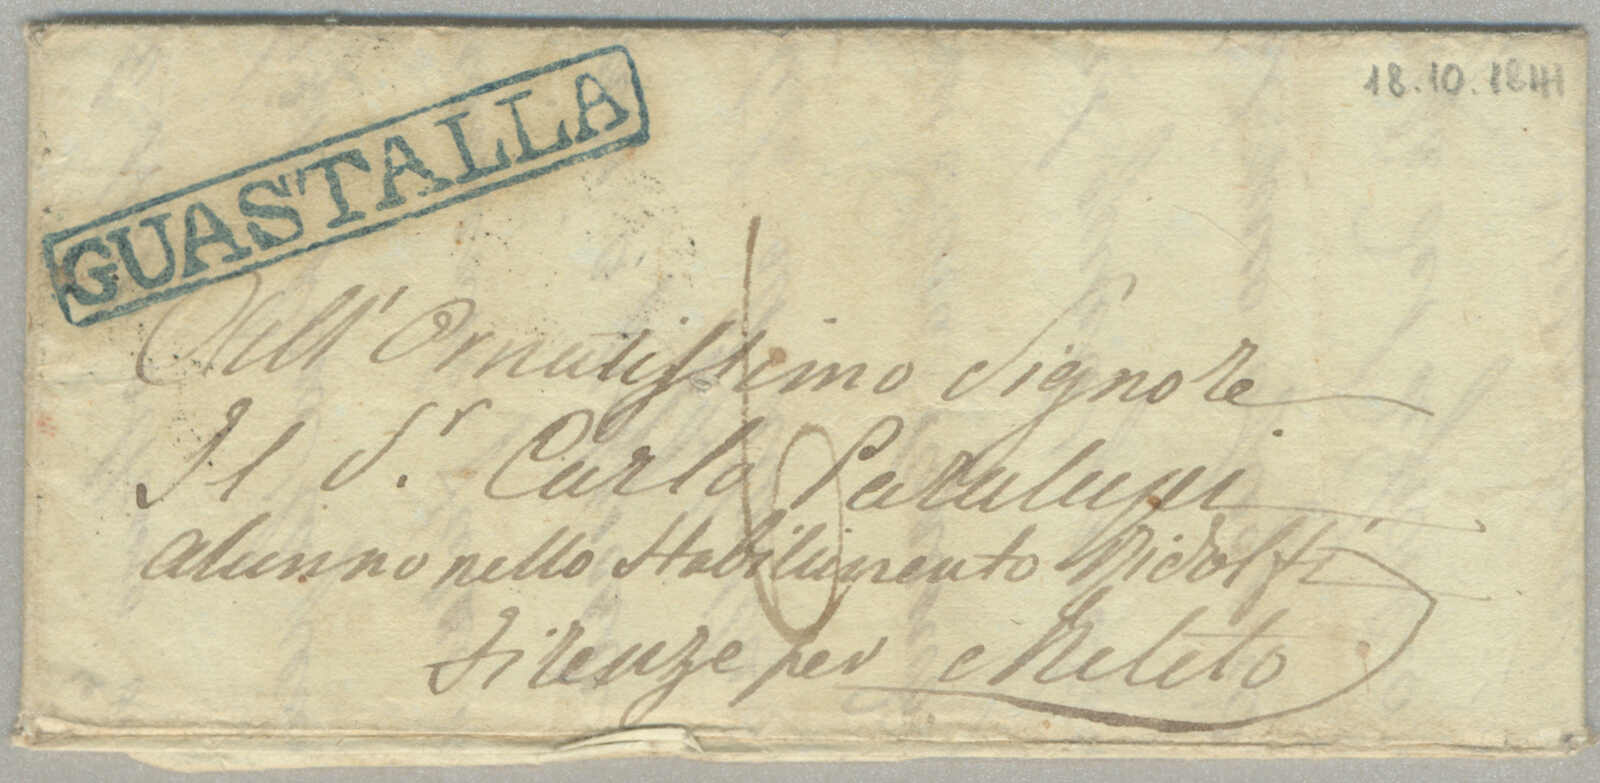 GUASTALLA
18.10.1841
All' Ornatissimo Signore
Il Sr. Carlo
alunno nello Stabilimento Ridolfi
Firenze per Meleto